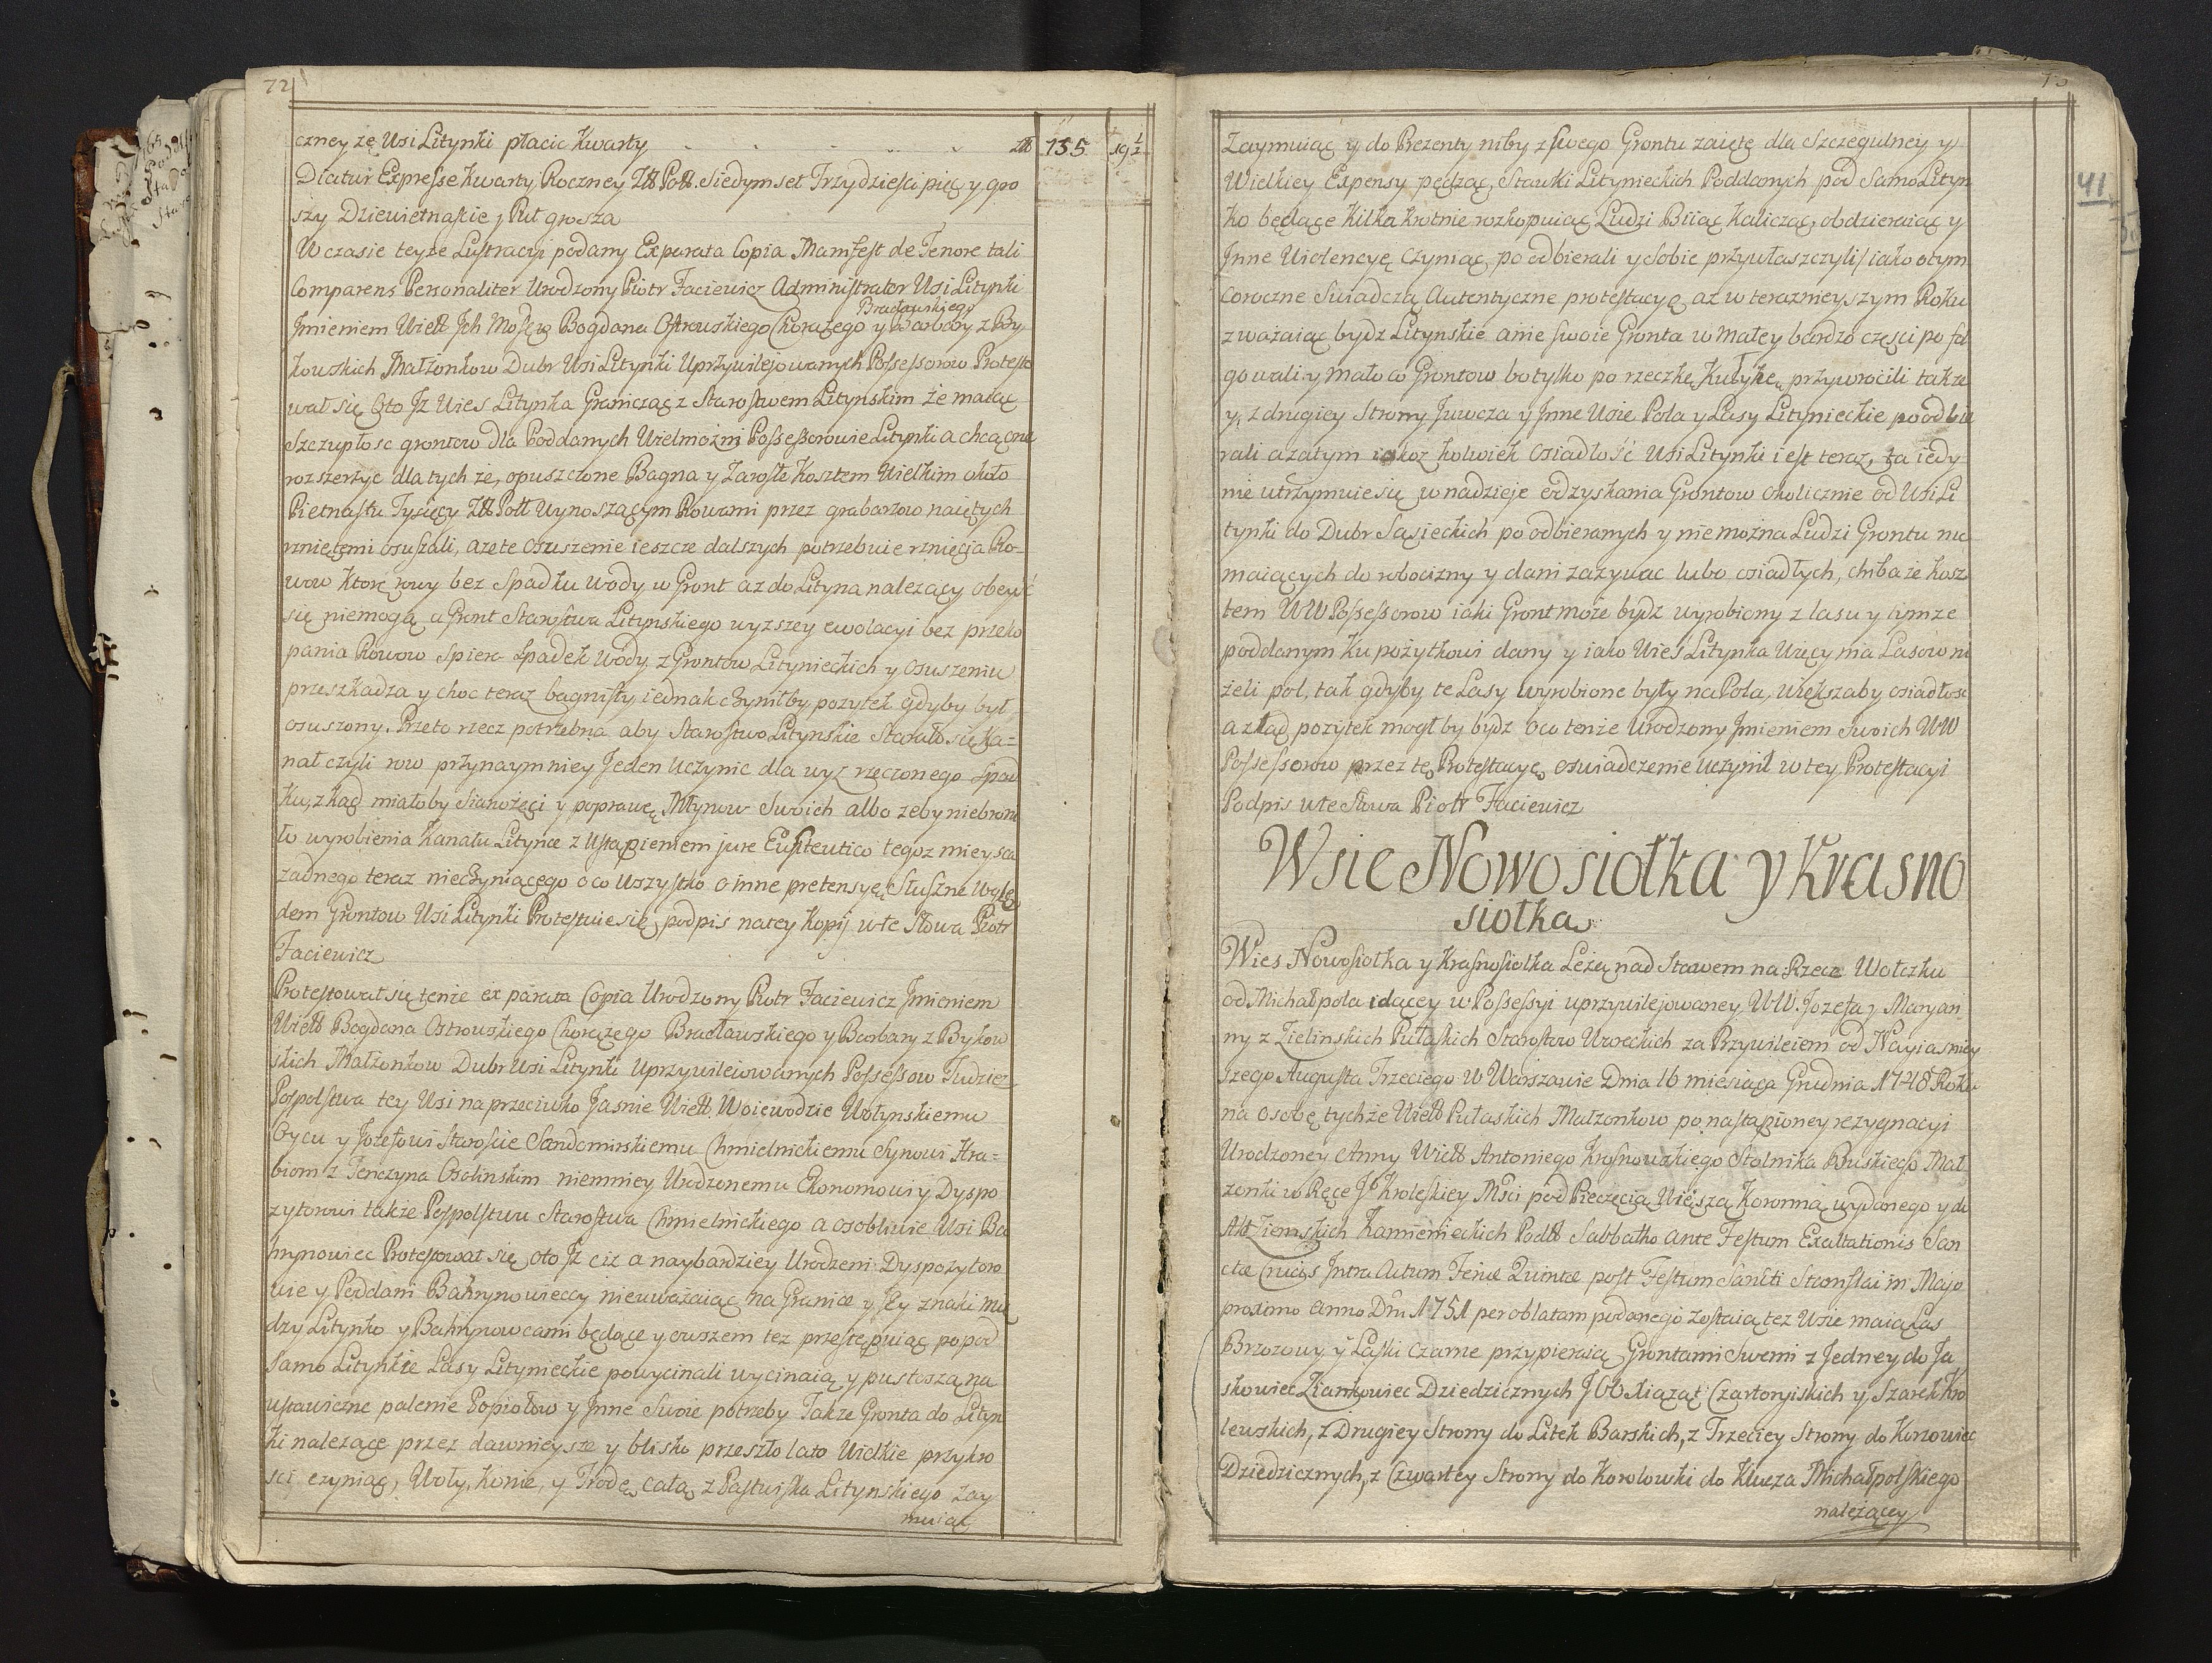 72
czney zę Wsi Litynki płacic Kwarty . . . . . Zł 735 19½
Dicitur Expresse Kwarty Roczney Zł Poll. Siedymset Trzydziesci pięc y gro
szy Dziewietnascie y Puł grosza
W czasie teyże Lustracyi podany Exparata Copia Manifest de Tenore tali
Comparens Personaliter Urodzony Piotr Faciewicz Administrator Wsi Litynki
Bracławskiego
Jmieniem Wiell Jch Mosciow Bogdana Ostrowskiego Chorążego y Barbary z By
kowskich Małżonkow Dubr Wsi Litynki Uprzywilejowanych Possessorow Protesto
wał się Oto Jz Wies Litynka Granicząc z Starostwem Litynskim że maiąc
Szczupłosc grontow dla Poddanych Wielmożni Possessorowie Litynki a chcąc one
rozszerzyc dla tych ze, opuszczone Bagna y Zarosłe Kosztem Wielkim około
Pietnastu Tysięcy Zł Poll Wynoszącym Rowami przez grabarzow naiętych
rzniętemi osuszali, a ze te osuszenie ieszcze dalszych potrzebuie rznięcia Ro-
wow ktorę rowy bez Spadku Wody w Gront az do Lityna nalezący obeysc
się niemogą a Gront Starostwa Litynskiego wyzszey ewolacyi bez przeko
pania Rowow Spiera Spadek Wody z Grontow Lityneckich y Osuszeniu
przeszkadza y choc teraz bagnisty iednak czyniłby pozytek gdyby był
osuszony. Przeto rzecz potrzebna aby Starostwo Litynskie Starało się Ka=
nał czyli row przynaymniey Jeden Uczynic dla wyz rzeczonego Spad
ku, zkąd miałoby Sianożęci y poprawę Młynow Swoich albo zeby niebroni
ło wyrobienia Kanału Litynce z Ustąpieniem jure Emfiteutico tegoz mieysca
zadnego teraz nieczyniącego o co Wszystko o inne pretensyę Słuszne Wzglę
dem Grontow Wsi Litynki Protestuie się podpis na tey Kopij w te Słowa Piotr
Faciewicz
Protestował się tenże ex parata Copia Urodzony Piotr Faciewicz Jmieniem
Wiell Bogdana Ostrowskiego Chorązego Bracławskiego y Barbary z Bykow
skich Małżonkow Dubr Wsi Litynki Uprzywileiowanych Possessow Tudziez
Pospolstwa tey Wsi na przeciwko Jasnie Wiell. Woiewodzie Wołynskiemu
Oycu y Jozefowi Staroscie Sandomirskiemu Chmielnickiemu Synowi Hra=
biom z Tenczyna Osolinskim niemniey Urodzonemu Ekonomowi y Dyspo
zytorowi także Pospolstwu Starostwa Chmielnickiego a osobliwie Wsi Ba
hrynowiec Protestował się oto Jz ciz a naybardziey Urodzeni Dyspozytoro
wie y Poddani Bahrynowieccy nieuważaiąc na Granice y Jey znaki mię
dzy Litynko y Bahrynowcami będące y owszem tez przestępuiąc popod
Samo Litynkie Lasy Lityneckie powycinali wycinaią y pustoszą na
ustawiczne palenie Popiołow y Jnne Swoie potrzeby Takze Gronta do Lityn
ki nalezącę przez dawnieysze y blisko przeszło lato Wielkie przykro
sci czyniąc, Woły, Konie, y Trodę całą z Pastwiska Litynskiego Zay
muiąc
73
41
Zaymuiąc y do Prezenty niby z swego Grontu zaięte dla Szczegulney y
Wielkiey Expensy pędząc, Stawki Litynieckich Poddanych pod Samo Lityn
ko będące Kilka krotnie rozkopuiąc Ludzi Biiąc Kalicząc, obdzieraiąc y
Jnne Wiolencyę Czyniąc, poodbierali y Sobie przywłaszczyli iako otym
coroczne Swiadczą Autentyczne protestacyę, az w teraznieyszym Roku
zważaiąc bydz Litynskie a nie swoie Gronta w Małey bardzo częsci po fol
gowali y mało co Grontow bo tylko po rzeczkę Kułykę przywrocili także
y z drugiey Strony Juwcza y Jnne Wsie Pola y Lasy Litynieckie poodbie
rali a zatym iakoz kolwiek osiadłość Wsi Litynki iest teraz, ta iedy
nie utrzymuie się w nadzieje odzyskania Grontow okolicznie od Wsi Li
tynki do Dubr Sąsieckich poodbieranych y nie można Ludzi Grontu nie
maiących do robocizny y dani zazywac lubo osiadłych, chiba ze kosz
tem WW Possessorow iaki Gront może bydz wyrobiony z lasu y tymze
poddanym Ku pożytkowi dany y iako Wieś Litynka Więcy ma Lasow ni
żeli pol, tak gdyby te Lasy wyrobione były na Pola, większaby osiadłosc
a ztąd pozytek mogłby bydz Oco tenże Urodzony Jmieniem Swoich WW
Possessorow przez tę Protestacyę oswiadczenie uczynił w tey Protestacyi
Podpis w te Słowa Piotr Faciewicz
Wsie Nowosiołka y Krasno
siołka
Wies Nowosiołka y Krasnosiołka Leżą nad Stawem na Rzece Wołczku
od Michałpola idącey w Possessyi uprzywilejowaney WW. Jozefa y Maryan
ny z Zielinskich Pułaskich Starostow Wareckich za Przywileiem od Nayiasniey
szego Augusta Trzeciego w Warszawie Dnia 16 miesiąca Grudnia 1748 Roku
na osobę tychże Wiell Pułaskich Małzonkow po nastąpioney rezygnacyi
Urodzoney Anny Wiell Antoniego Krosnowskiego Stolnika Buskiego Mał
zonki w Ręcę J Krolewskiey Mści pod Pieczęcią Więszą Koronną wydanego y do
Akt Ziemskich Kamienieckich Podll Sabbatho ante Festum Exaltationis San
ctæ Crucis Intra Actum Feriæ Quintæ post Festum Sancti Stanislai in Majo
proximo Anno Dni 1751 per oblatam podanego zostaią tez Wsie maią Las
Brzozowy y Laski Czarne przypieraią Grontami Swemi z Jedney do Ja
skowiec Ziankowiec Dziedzicznych J OO Xiąząt Czartoryiskich y Szarek Kro
lewskich, z Drugiey Strony do Litek Barskich, z Trzeciey Strony do Korzowiec
Dziedzicznych, z Czwartey Strony do Korolowki do Klucza Michałpolskiego
należącey